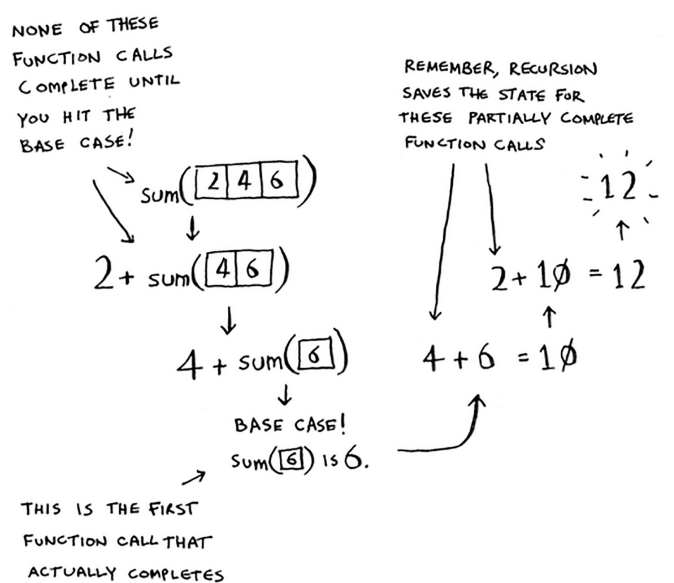 NONE OF THESE
FUNCTION CALLS
COMPLETE UNTIL
YOU HIT THE
BASE CASE!
sum(2 4 6)
2 + sum(4 6)
4 + sum(6)
BASE CASE!
sum(6) IS 6.
THIS IS THE FIRST
FUNCTION CALL THAT
ACTUALLY COMPLETES
REMEMBER, RECURSION
SAVES THE STATE FOR
THESE PARTIALLY COMPLETE
FUNCTION CALLS
12
2 + 10 = 12
4 + 6 = 10